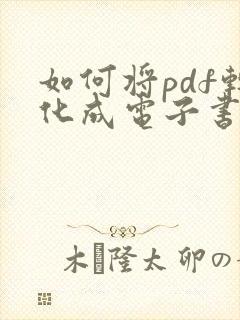 如何将pdf轉
化成電子書
木 隆太卯の